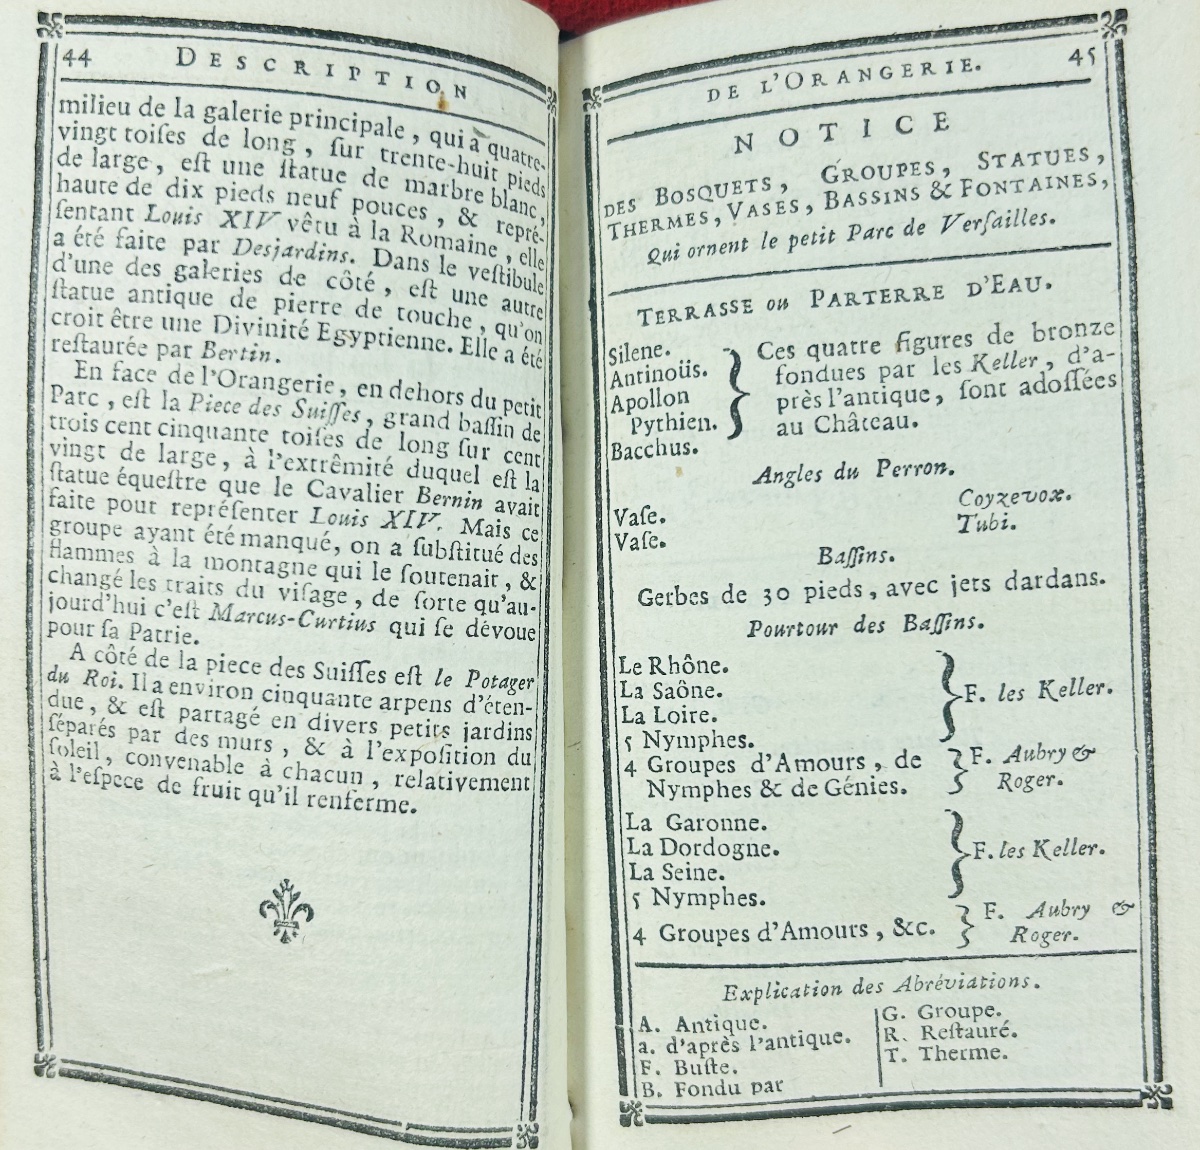 44 DESCRIPTION
milieu de la galerie principale, qui a quatre-
vingt toiſes de long, ſur trente-huit pieds
de large, eſt une ſtatue de marbre blanc,
haute de dix pieds neuf pouces, & repré-
ſentant Louis XIV vêtu à la Romaine, elle
a été faite par Desjardins. Dans le veſtibule
d'une des galeries de côté, eſt une autre
ſtatue antique de pierre de touche, qu'on
croit être une Divinité Egyptienne. Elle a été
reſtaurée par Bertin.
En face de l'Orangerie, en dehors du petit
Parc, eſt la Piece des Suiſſes, grand baſſin de
trois cent cinquante toiſes de long ſur cent
vingt de large, à l'extrêmité duquel eſt la
ſtatue équeſtre que le Cavalier Bernin avait
faite pour repréſenter Louis XIV. Mais ce
groupe ayant été manqué, on a ſubſtitué des
flammes à la montagne qui le ſoutenait, &
changé les traits du viſage, de ſorte qu'au-
jourd'hui c'eſt Marcus-Curtius qui ſe dévoue
pour ſa Patrie.
A côté de la piece des Suiſſes eſt le Potager
du Roi. Il a environ cinquante arpens d'éten-
due, & eſt partagé en divers petits jardins
ſéparés par des murs, & à l'expoſition du
ſoleil, convenable à chacun, relativement
à l'eſpece de fruit qu'il renferme.
DE L'ORANGERIE. 45
NOTICE
DES BOSQUETS, GROUPES, STATUES,
THERMES, VASES, BASSINS & FONTAINES,
Qui ornent le petit Parc de Verſailles.
TERRASSE ou PARTERRE D'EAU.
Silene.
Antinoüs.
Apollon
Pythien.
Bacchus.
Ces quatre figures de bronze
fondues par les Keller, d'a-
près l'antique, ſont adoſſées
au Château.
Angles du Perron.
Vaſe. Coyzevox.
Vaſe. Tubi.
Baſſins.
Gerbes de 30 pieds, avec jets dardans.
Pourtour des Baſſins.
Le Rhône.
La Saône.
La Loire.
5 Nymphes.
F. les Keller.
4 Groupes d'Amours, de
Nymphes & de Génies.
F. Aubry &
Roger.
La Garonne.
La Dordogne.
La Seine.
5 Nymphes.
F. les Keller.
4 Groupes d'Amours, &c.
F. Aubry &
Roger.
Explication des Abréviations.
A. Antique.
a. d'après l'antique.
F. Buſte.
B. Fondu par
G. Groupe.
R. Reſtauré.
T. Therme.